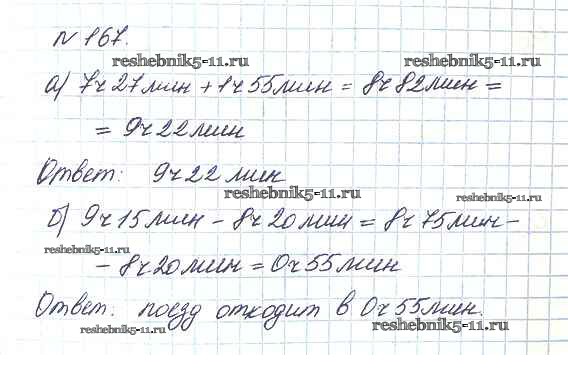 N 167.
reshebnik5-11.ru reshebnik5-11.ru
а) 7ч 27мин + 1ч 55мин = 8ч 82мин =
= 9ч 22мин
Ответ: 9ч 22 мин
reshebnik5-11.ru reshebnik5-11.ru
б) 9ч 15мин - 8ч 20мин = 8ч 75мин -
reshebnik5-11.ru
- 8ч 20мин = 0ч 55мин
Ответ: поезд отходит в 0ч 55мин.
reshebnik5-11.ru reshebnik5-11.ru